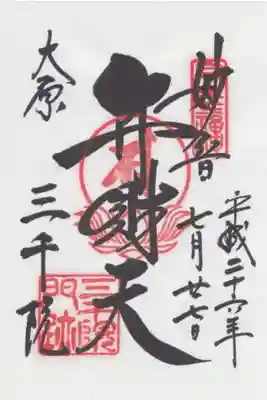 平成二十六年
七月廿七日
妙音
弁財天
大原
三千院
三千院
門跡